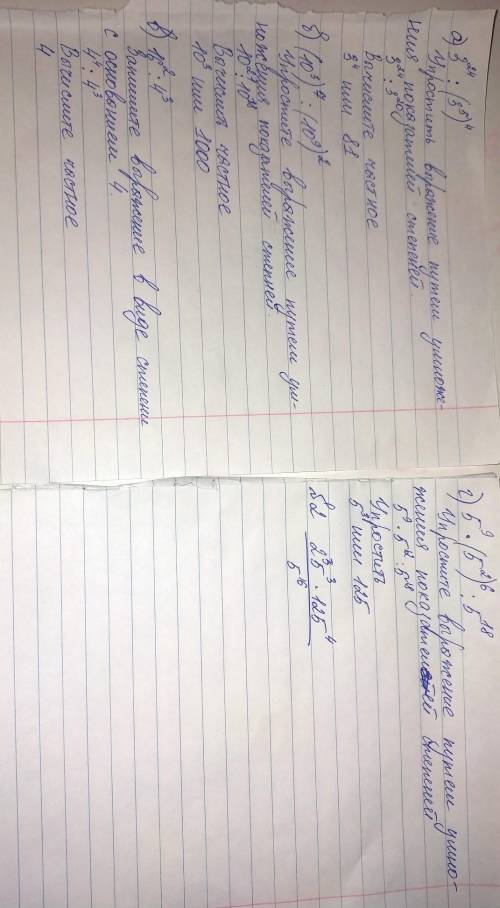 а) 3²⁴ : (3⁵)⁴
Упростить выражение путем умноже-
ния показателей степеней.
3²⁴ : 3²⁰
Вычислите частное
3⁴ или 81
б) (10³)⁷ : (10⁹)²
Упростите выражение путем ум-
ножения показателей степеней.
10²¹ : 10¹⁸
Вычисли частное
10³ или 1000
в) 16² : 4³
Запишите выражение в виде степени
с основанием 4.
4⁴ : 4³
Вычислите частное
4
г) 5⁹ · (5²)⁶ : 5¹⁸
Упростите выражение путем умно-
жения показателей степеней
5⁹ · 5¹² : 5¹⁸
Упростить
5³ или 125
25³ · 125⁴
5¹⁶